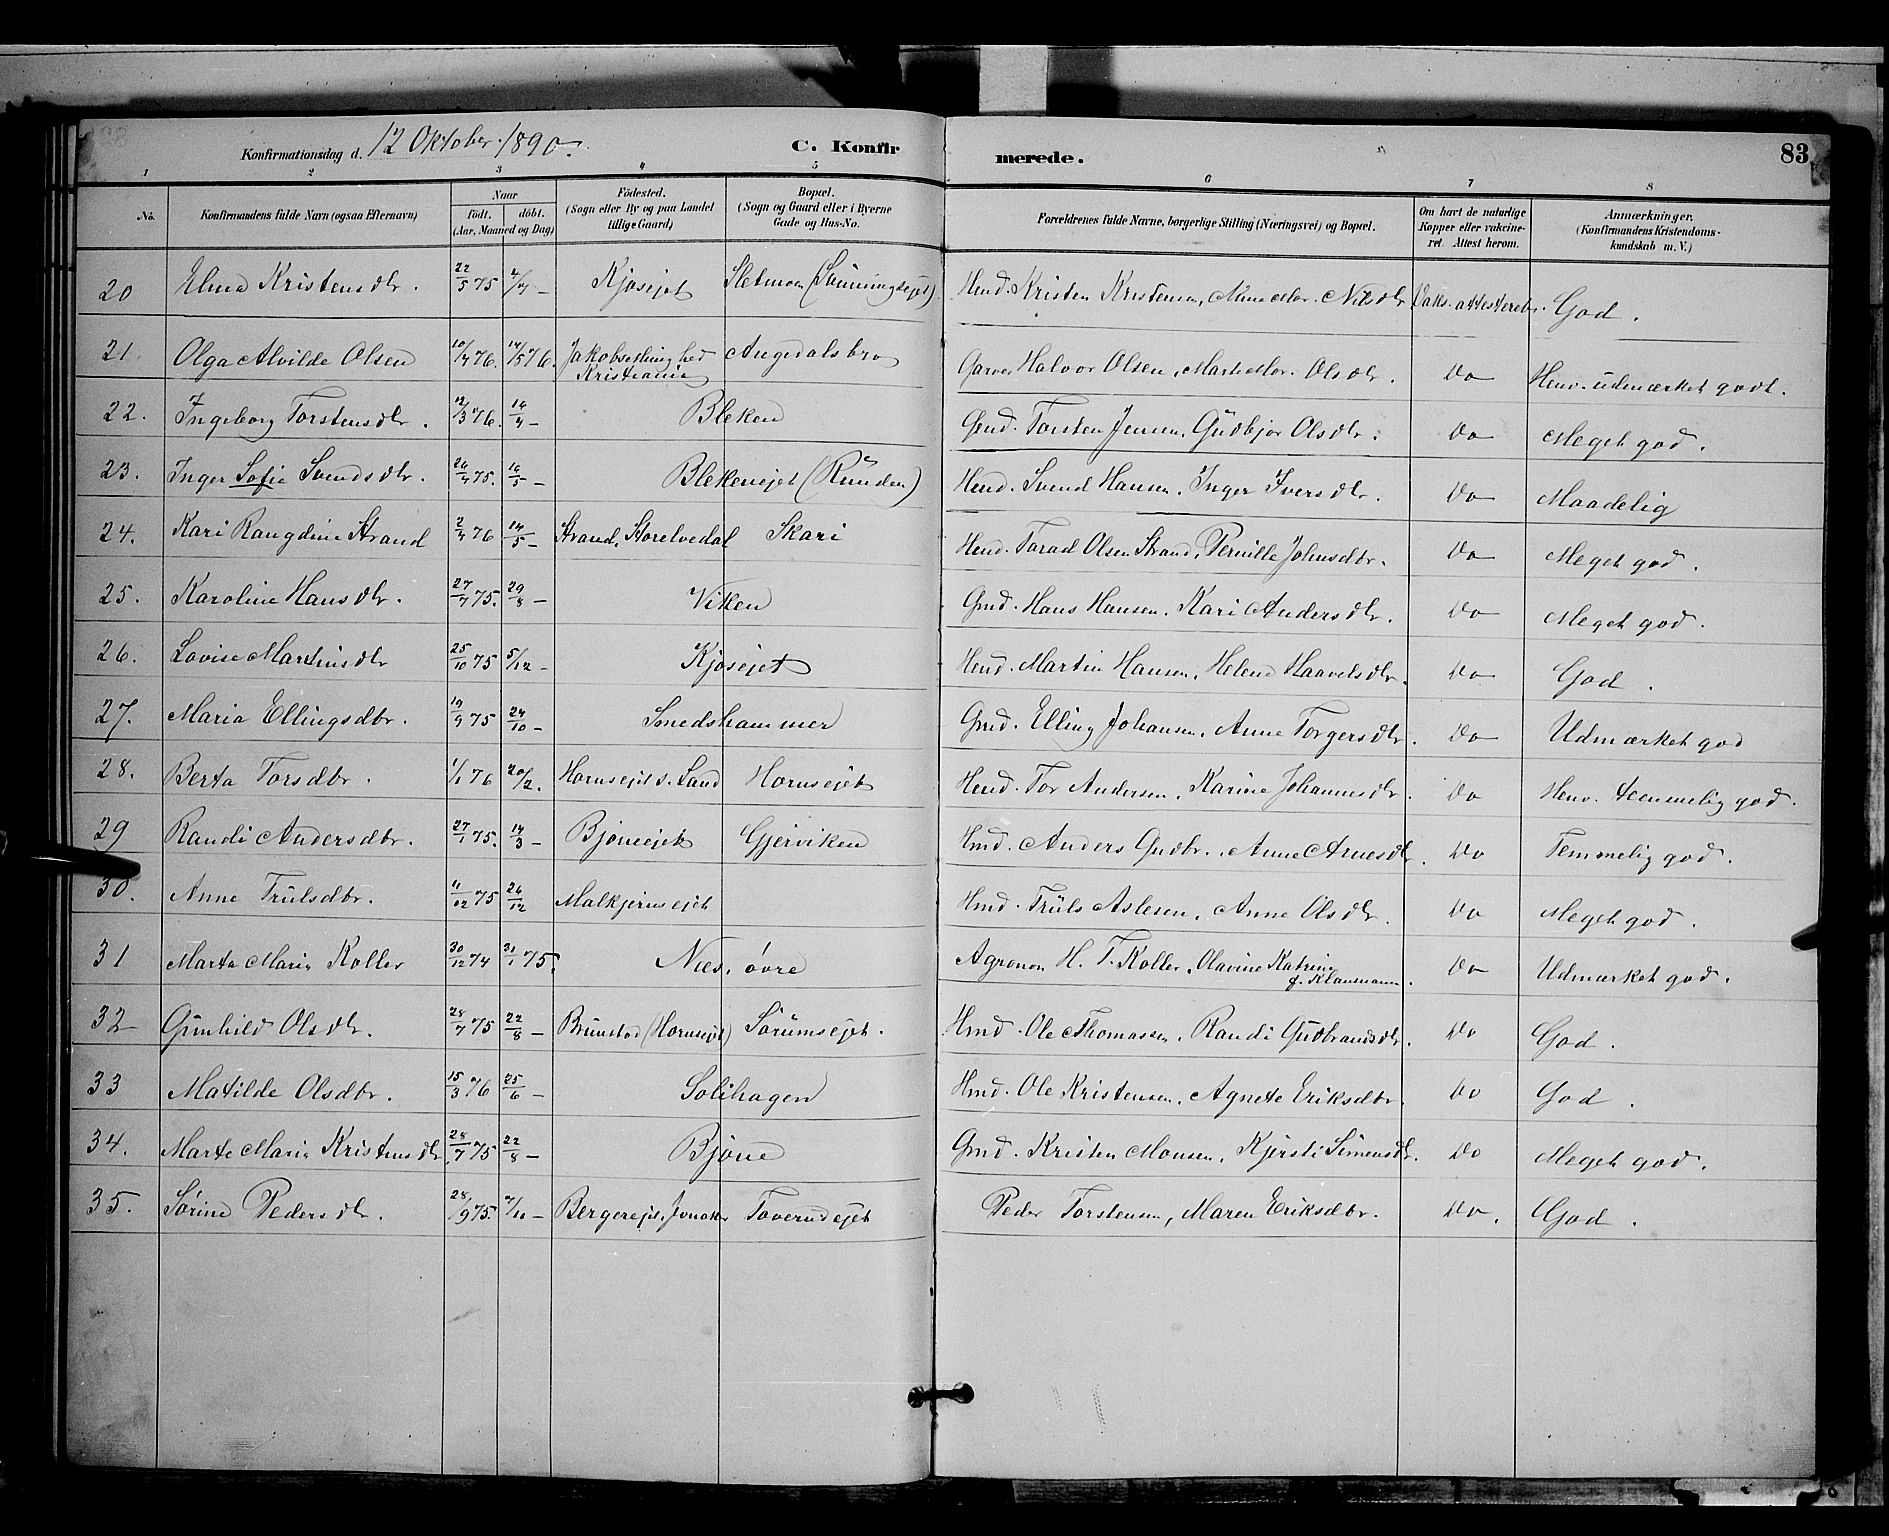 Konfirmationsdag d. 12 Oktober 1890.
C. Konfir
merede.
83
1 2 3 4 5 6 7 8
No.
Konfirmandens fulde Navn (ogsaa Efternavn)
Naar
födt. döbt.
(Aar, Maaned og Dag)
Födested.
(Sogn eller By og paa Landet
tillige Gaard)
Bopæl.
(Sogn og Gaard eller i Byerne
Gade og Hus-No.
Forældrenes fulde Navne, borgerlige Stilling (Næringsvei) og Bopæl.
Om havt de naturlige
Kopper eller vakcine-
ret. Attest herom.
Anmærkninger.
(Konfirmandens Kristendoms-
kundskab m. V.)
20 Elma Kristensdtr. 22/5 75 Kjøsejet Kristen Kristensen, Nilsdtr Vaks. attesteret. God.
21. Olga Alvilde Olsen 10/4 76. 14/5 76. Kristiania Augedalsbro Garver Halvor Olsen, Olsdtr. Do Henv. udmærket godt.
22. Ingeborg Torstensdtr. 12/3 76. 16/4 – Bleken Gmd. Torsten Jensen, Gudbjør Olsdtr. Do Meget god.
23. Inger Sofie Svendsdtr. 75. 16/5 – Blekenejet (Runden) Hmd. Svend Hansen, Inger Iversdtr. Do Maadelig
24. Kari Rangdine Strand 2/4 76 14/5 – Strand, Storelvedal Skari Hmd. Tarad Olsen Strand, Pernille Johnsdtr. Do Meget god.
25. Karoline Hansdtr. 27/7 75. 29/8 – Viken Gmd. Hans Hansen, Kari Andersdtr. Do Meget god.
26. Lovise Martinsdtr 25/10 75 5/12 – Kjøsejet Hmd. Martin Hansen, Helene Haavelsdtr. Do God.
27. Maria Ellingsdtr. 19/9 75 24/10 – Smedshammer Gmd. Elling Johansen, Anne Torgersdtr. Do Udmærket god
28. Berta Torsdtr. 1/1 76 20/2. Hornsejet s. Land Hornsejet Hmd. Tor Andersen, Karine Johannesdtr. Do Henv. temmelig god.
29 Randi Andersdtr. 27/1 75. 14/3 – Bjøneejet Gjerviken Hmd. Anders Gudbr., Anne Arnesdtr. Do Temmelig god.
30. Anne Trulsdtr. 11/12 75 26/12 Malkjernsejet Hmd. Truls Aslesen, Anne Olsdtr. Do Meget god.
31 Marte Marie Koller 30/12 74 31/1 75. Næs, øvre Agronom H. T. Koller, Olavine Katrine
f. Klausmann. Do Udmærket god.
32 Gunhild Olsdtr. 24/7 75 22/8 – Brunstad (Hornsejet) Sørumsejet. Hmd. Ole Thomassen, Randi Gudbrandsdtr. Do God.
33 Matilde Olsdtr. 15/3 76 25/6 – Solihagen Hmd. Ole Kristensen, Agnete Eriksdtr. Do God.
34. Marte Marie Kristensdtr. 28/7 75 22/8 – Bjøne Gmd. Kristen Monsen, Kjersti Simensdtr. Do Meget god.
35. Sørine Pedersdtr. 28/9 75. 7/11 – Bergerejet, Jevnaker Toverudejet Peder Torstensen, Maren Eriksdtr. Do. God.